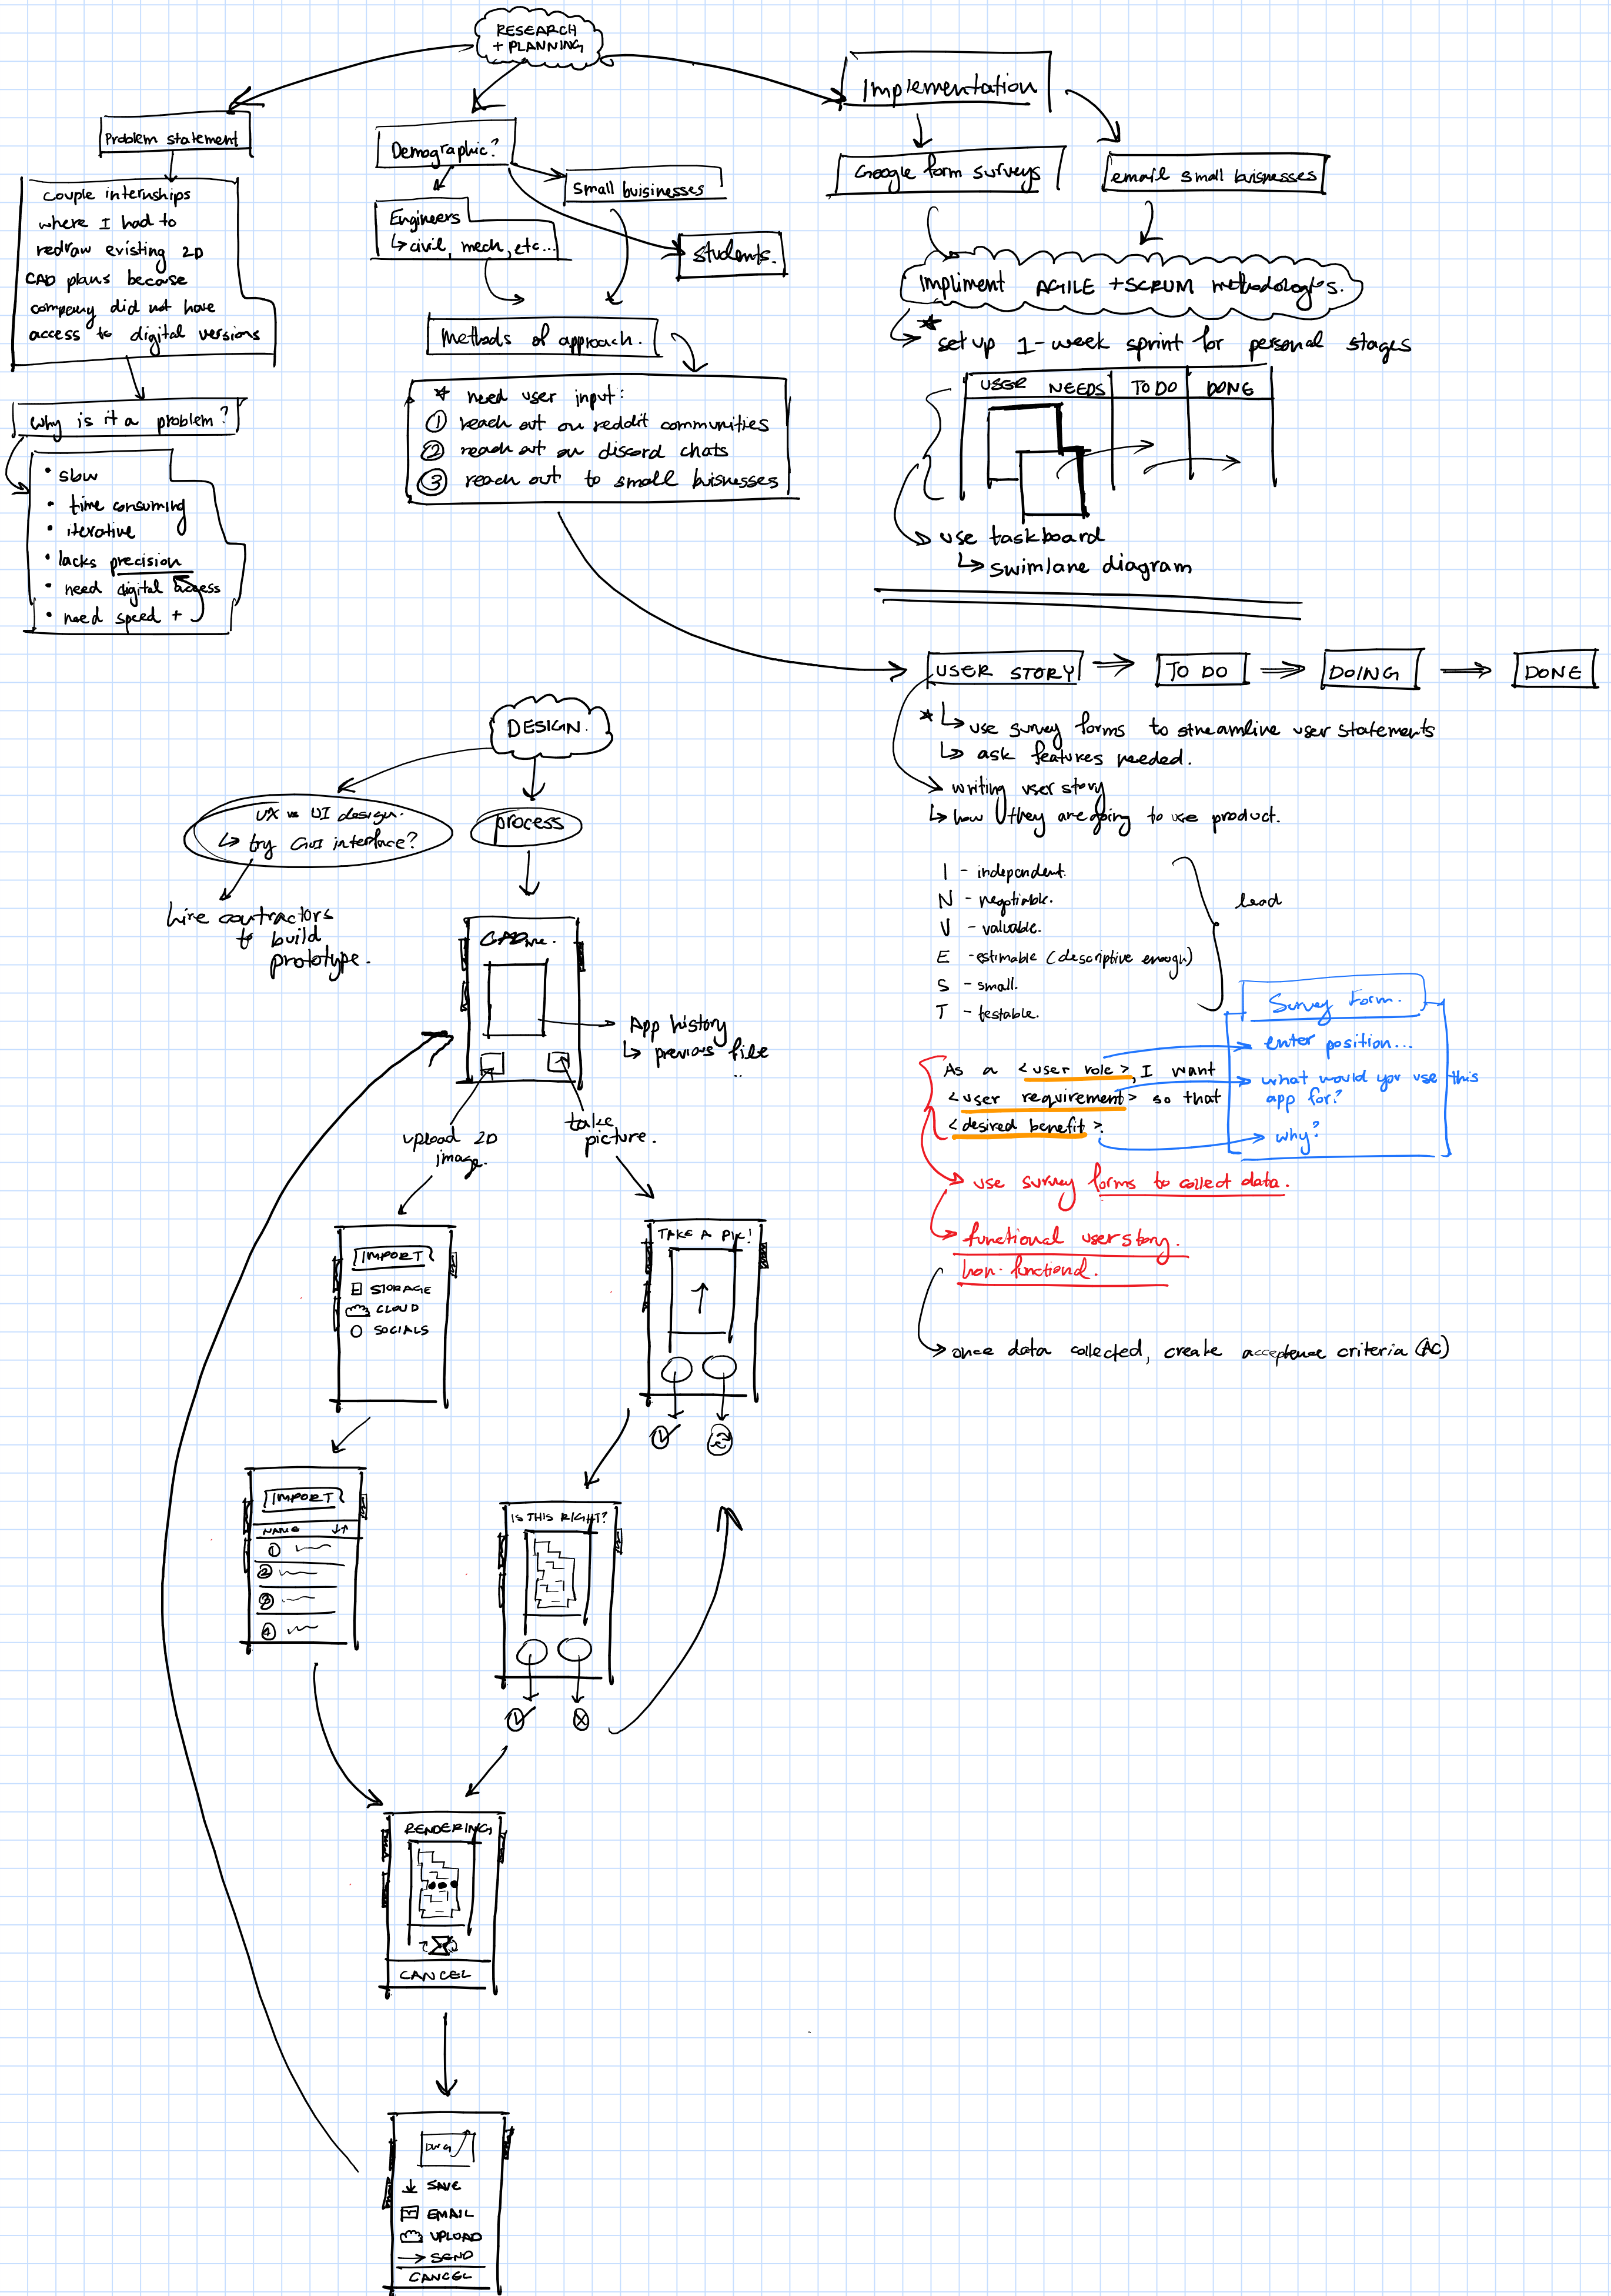 RESEARCH
+ PLANNING
Problem statement
couple internships
where I had to
redraw existing 2D
CAD plans because
company did not have
access to digital versions
why is it a problem?
• slow
• time consuming
• iterative
• lacks precision
• need digital access
• need speed +
Demographic?
Small buisinesses
Engineers
↳ civil, mech, etc...
students.
Methods of approach.
* need user input:
① reach out on reddit communities
② reach out on discord chats
③ reach out to small buisnesses
Implementation
Google form surveys
email small buisnesses
impliment AGILE + SCRUM methodologies.
* set up 1-week sprint for personal stages
USER NEEDS TO DO DONE
use taskboard
↳ swimlane diagram
USER STORY ⇒ TO DO ⇒ DOING ⇒ DONE
* ↳ use survey forms to streamline user statements
↳ ask features needed.
writing user story
↳ how they are going to use product.
I - independent.
N - negotiable.
V - valuable.
E - estimable (descriptive enough)
S - small.
T - testable.
lead
As a <user role>, I want
<user requirement> so that
<desired benefit>.
Survey Form.
enter position...
what would you use this
app for?
why?
use survey forms to collect data.
functional user story.
non-functional.
once data collected, create acceptence criteria (AC)
DESIGN.
UX vs UI design.
↳ try GUI interface?
hire contractors
to build
prototype.
process
CADme.
App history
↳ previous file
upload 2D
image.
take
picture.
IMPORT
STORAGE
CLOUD
SOCIALS
TAKE A PIC!
IMPORT
NAME ↓↑
①
②
③
④
IS THIS RIGHT?
RENDERING
CANCEL
DWG
SAVE
EMAIL
UPLOAD
→ SEND
CANCEL